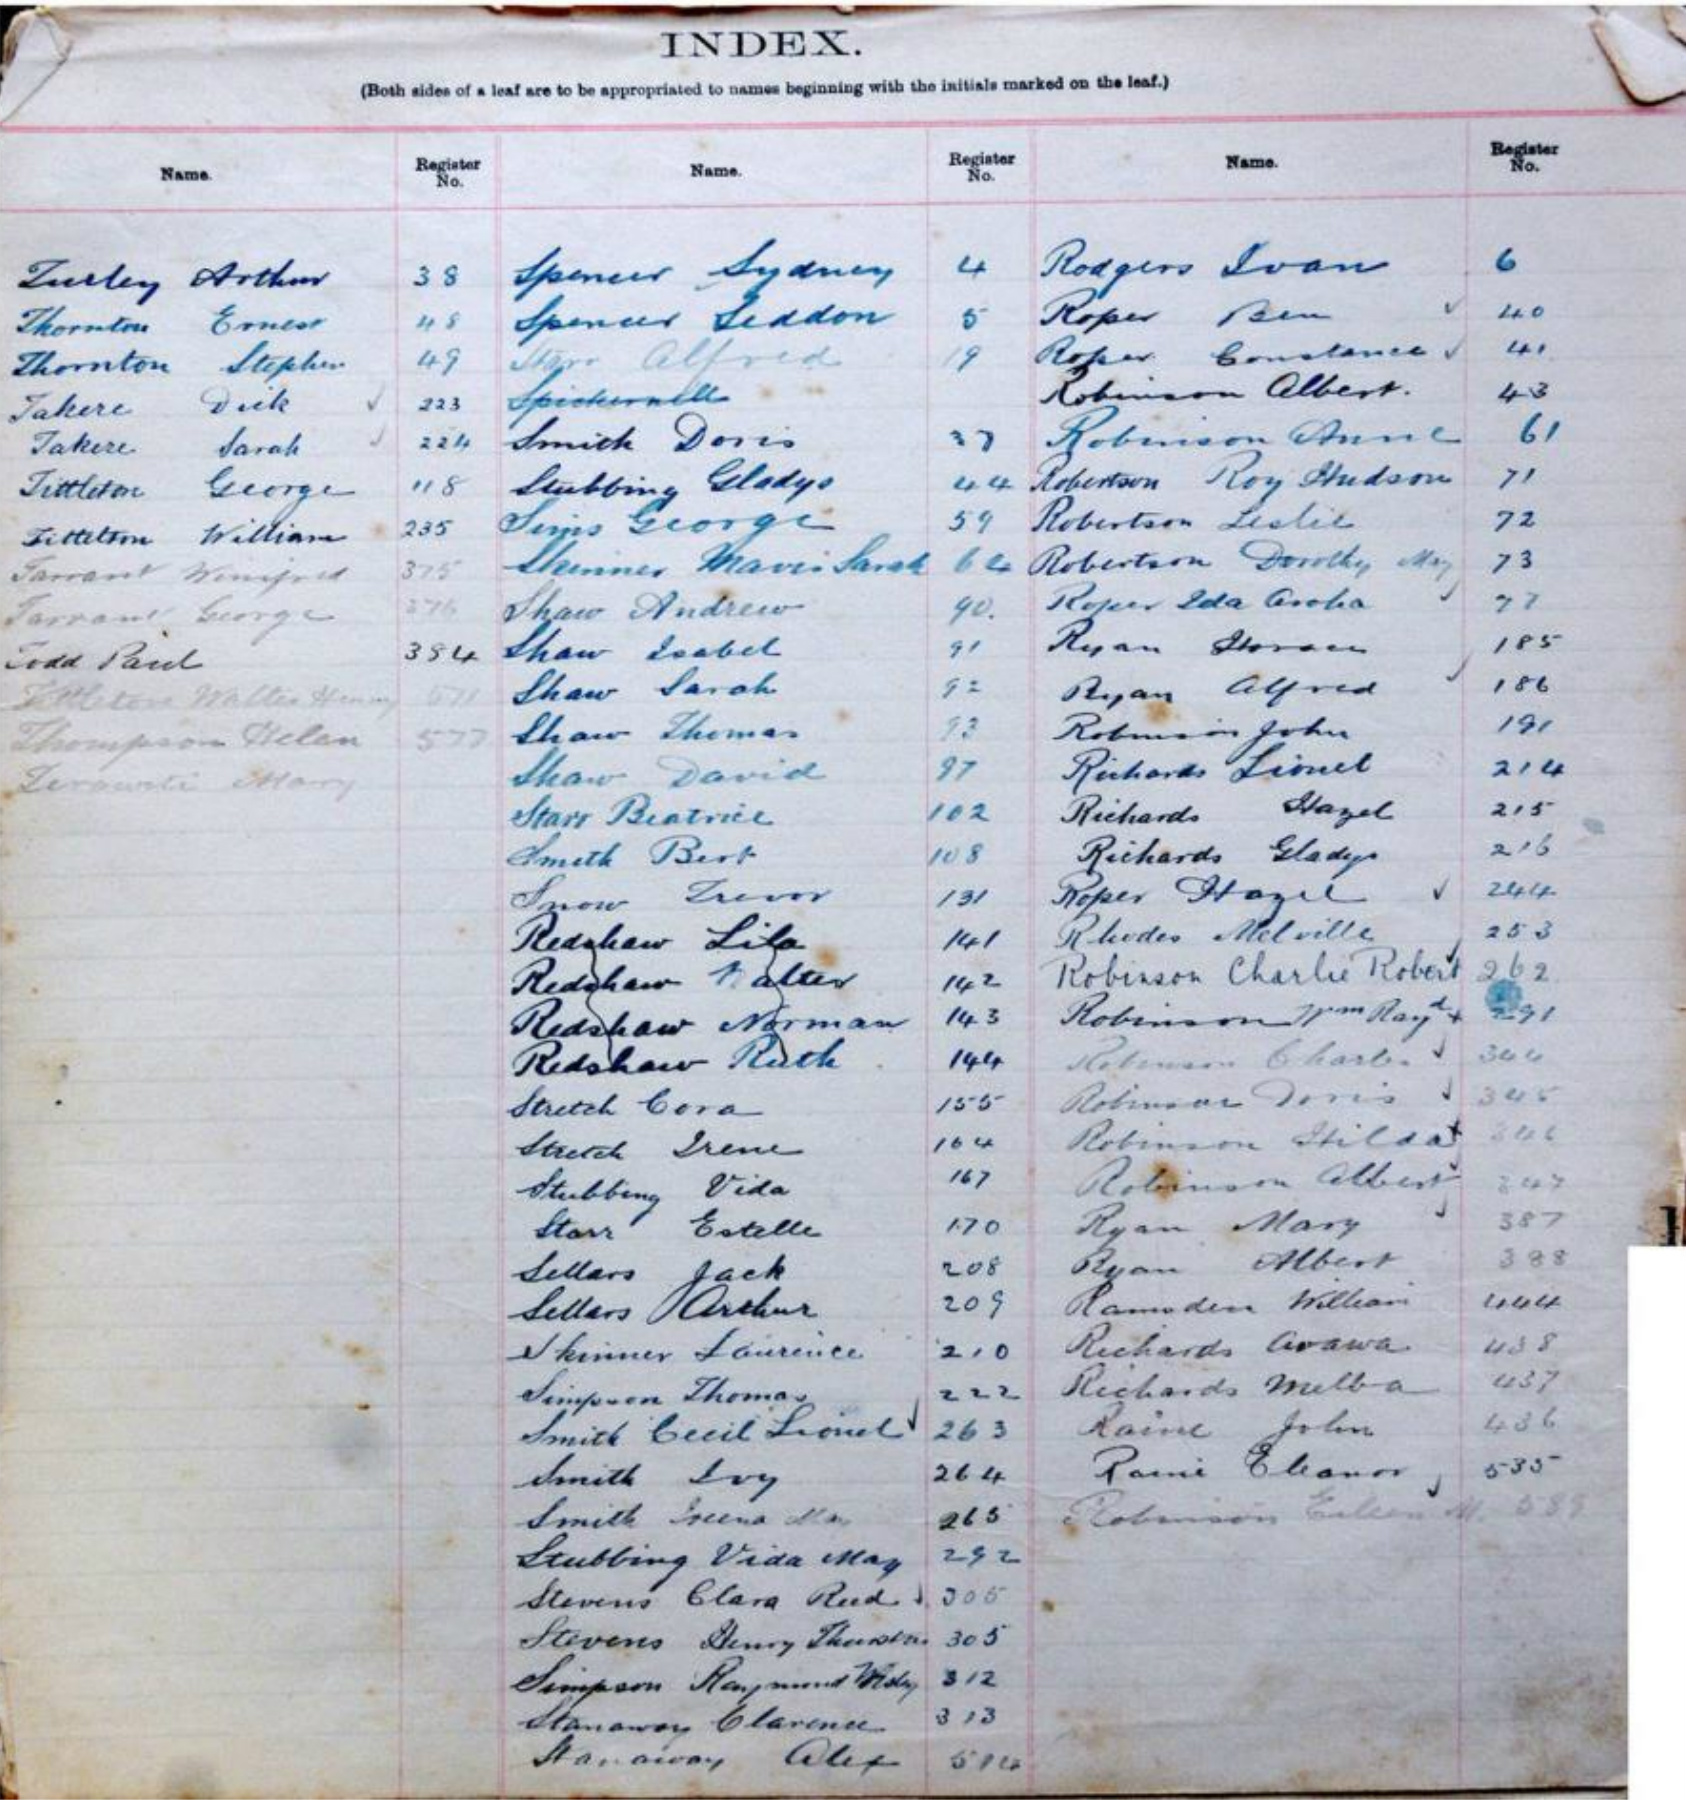 INDEX.
(Both sides of a leaf are to be appropriated to names beginning with the initials marked on the leaf.)
Name. Register No.
Turley Arthur 38
Thornton Ernest 48
Thornton Stephen 49
Takere Dick ✓ 223
Takere Sarah ✓ 224
Tittleton George 118
Tittelton William 235
Tarrant Winifred 375
Tarrant George 376
Todd Paul 384
Tittleton Walter Henry 571
Thompson Helen 577
Mary
Name. Register No.
Spencer Sydney 4
Spencer Seddon 5
Starr Alfred 19
Spickernell
Smith Doris 37
Stubbing Gladys 44
Sims George 59
Skinner Mavis Sarah 64
Shaw Andrew 90.
Shaw Isabel 91
Shaw Sarah 92
Shaw Thomas 93
Shaw David 97
Starr Beatrice 102
Smith Bert 108
Snow Trevor 131
Redshaw Lila 141
Redshaw Walter 142
Redshaw Norman 143
Redshaw Ruth 144
Stretch Cora 155
Stretch Irene 164
Stubbing Vida 167
Starr Estelle 170
Sellars Jack 208
Sellars Arthur 209
Skinner Laurence 210
Simpson Thomas 222
Smith Cecil Lionel ✓ 263
Smith Ivy 264
Smith May 265
Stubbing Vida May 292
Stevens Clara Reed ✓ 305
Stevens Henry Thurston 305
Simpson Raymond 312
Stanaway Clarence 313
Stanaway Alex 514
Name. Register No.
Rodgers Ivan 6
Roper Ben ✓ 40
Roper Constance ✓ 41
Robinson Albert. 43
Robinson Anne 61
Robertson Roy Hudson 71
Robertson Leslie 72
Robertson Dorothy May 73
Roper Ida Aroha ✓ 77
Ryan Horace 185
Ryan Alfred ✓ 186
Robinson John 191
Richards Lionel 214
Richards Hazel 215
Richards Gladys 216
Roper Hazel ✓ 244
Rhodes Melville 253
Robinson Charlie Robert ✓ 262
Robinson Wm Rayd 291
Robinson Charles ✓ 344
Robinson Doris ✓ 345
Robinson Hilda 346
Robinson Albert ✓ 347
Ryan Mary ✓ 387
Ryan Albert 388
Ramsden William 444
Richards Arawa 438
Richards Melba 437
Raine John 436
Raine Eleanor 535
Robinson Eileen M. ✓ 589